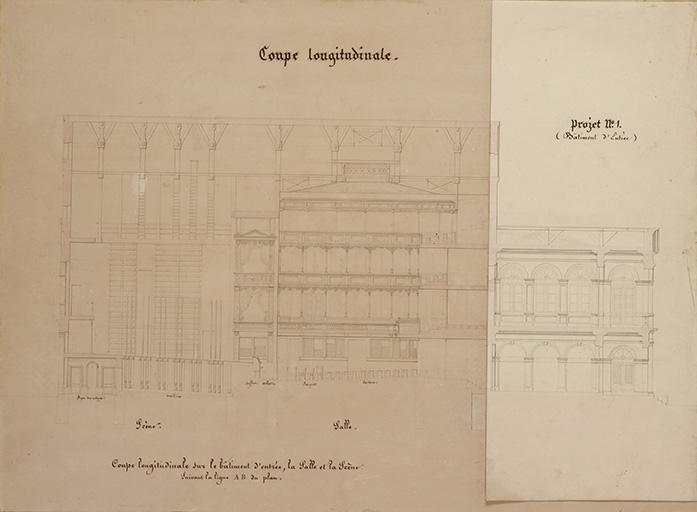 Coupe longitudinale.
Projet No. 1.
(Bâtiment d'Entrée)
Scène.
Salle.
Coupe longitudinale sur le bâtiment d'entrée, la Salle et la Scène
Suivant la ligne A B du plan.